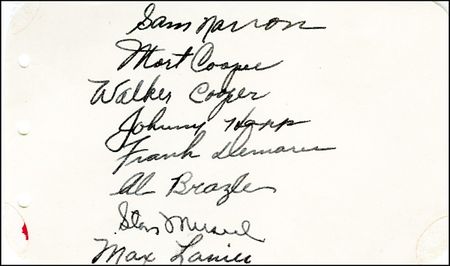 Sam Narron
Mort Cooper
Walker Cooper
Johnny Hopp
Frank Demaree
Al Brazle
Stan Musial
Max Lanier